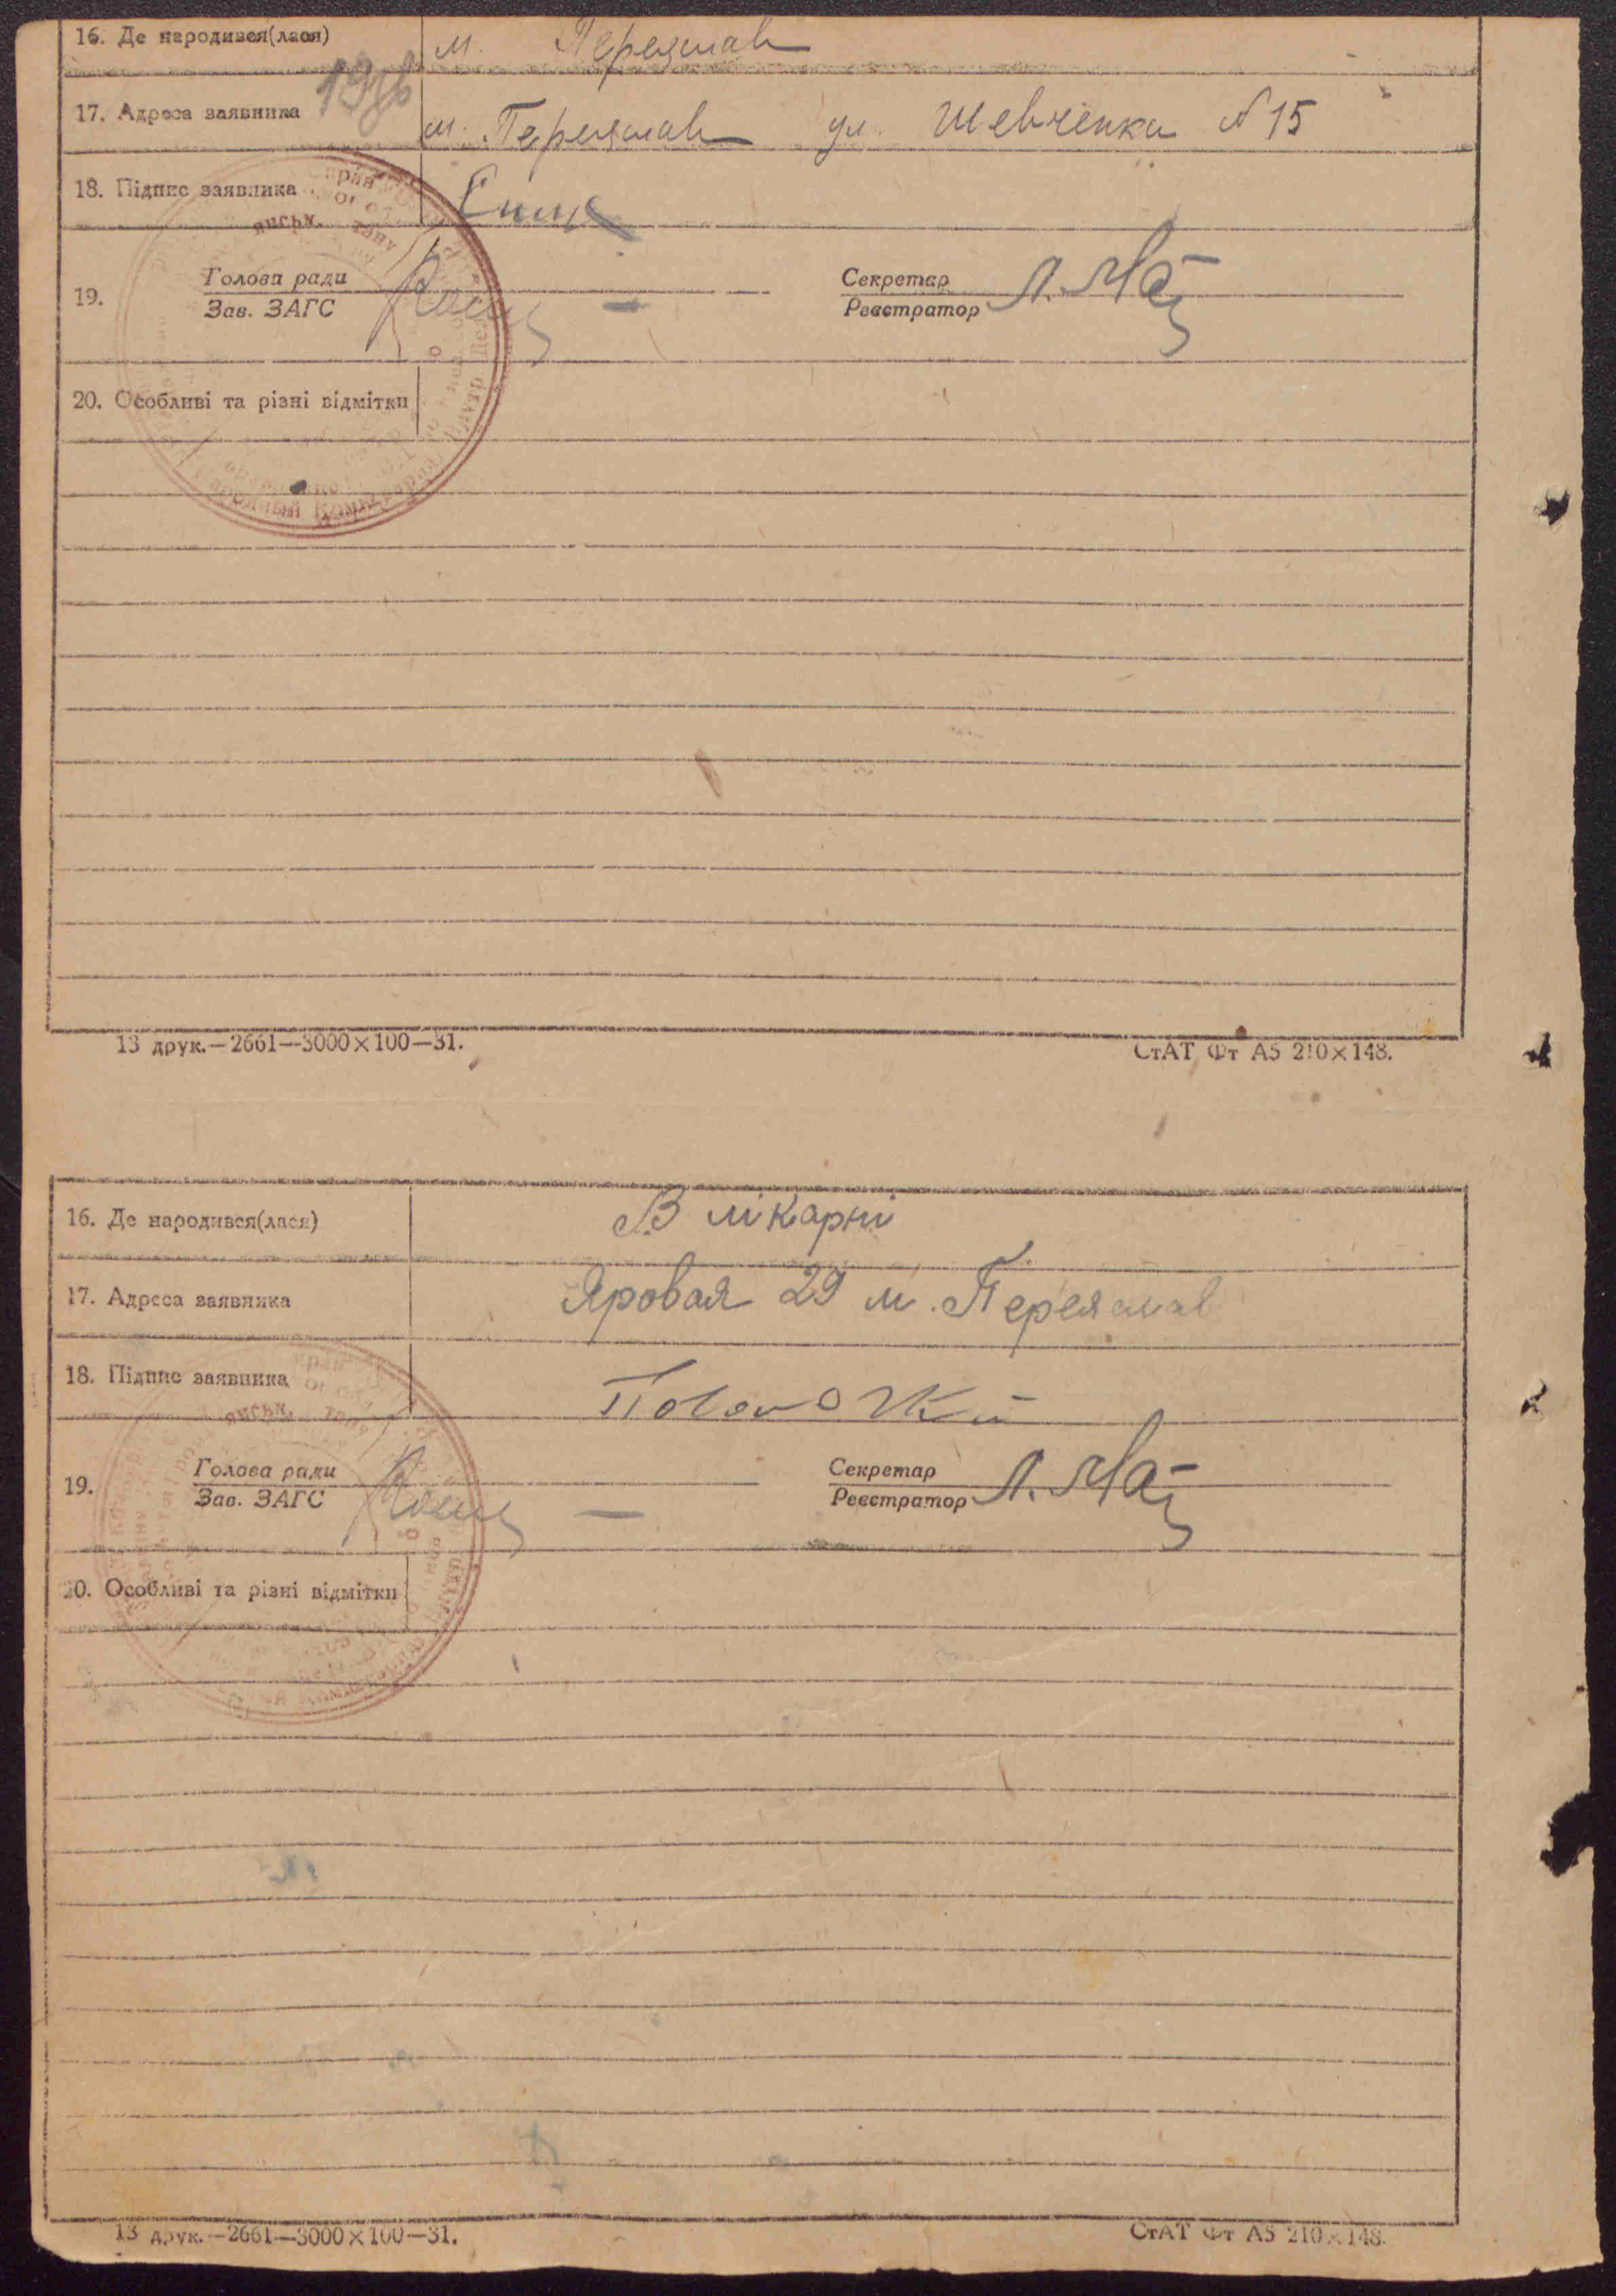 16. Де народився(лася) м. Переяслав
17. Адреса заявника м. Переяслав ул. Шевченка № 15
18. Підпис заявника
19. Голова ради Секретар
Зав. ЗАГС Реєстратор
20. Особливі та різні відмітки
13 друк.—2661—3000×100—31. СтАТ Фт А5 210×148.
16. Де народився(лася) В лікарні
17. Адреса заявника Яровая 29 м. Переяслав
18. Підпис заявника
19. Голова ради Секретар
Зав. ЗАГС Реєстратор
20. Особливі та різні відмітки
13 друк.—2661—3000×100—31. СтАТ Фт А5 210×148.